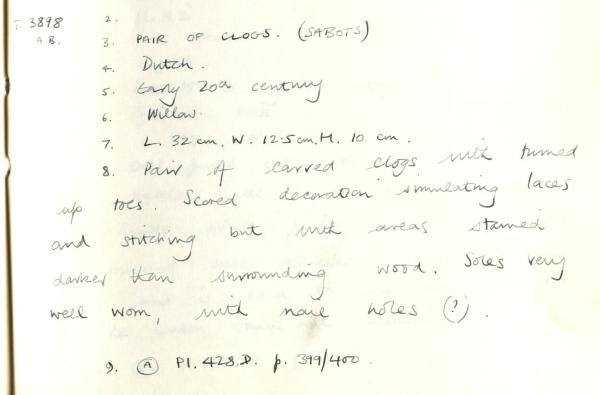 T. 3898
A.B.
2.
3. PAIR OF CLOGS. (SABOTS)
4. Dutch.
5. Early 20th century
6. Willow.
7. L. 32 cm. W. 12.5 cm. H. 10 cm.
8. Pair of carved clogs with turned
up toes. Scored decoration simulating laces
and stitching but with areas stained
darker than surrounding wood. Soles very
well worn, with nail holes (?).
9. (A) Pl. 428.D. p. 399/400.